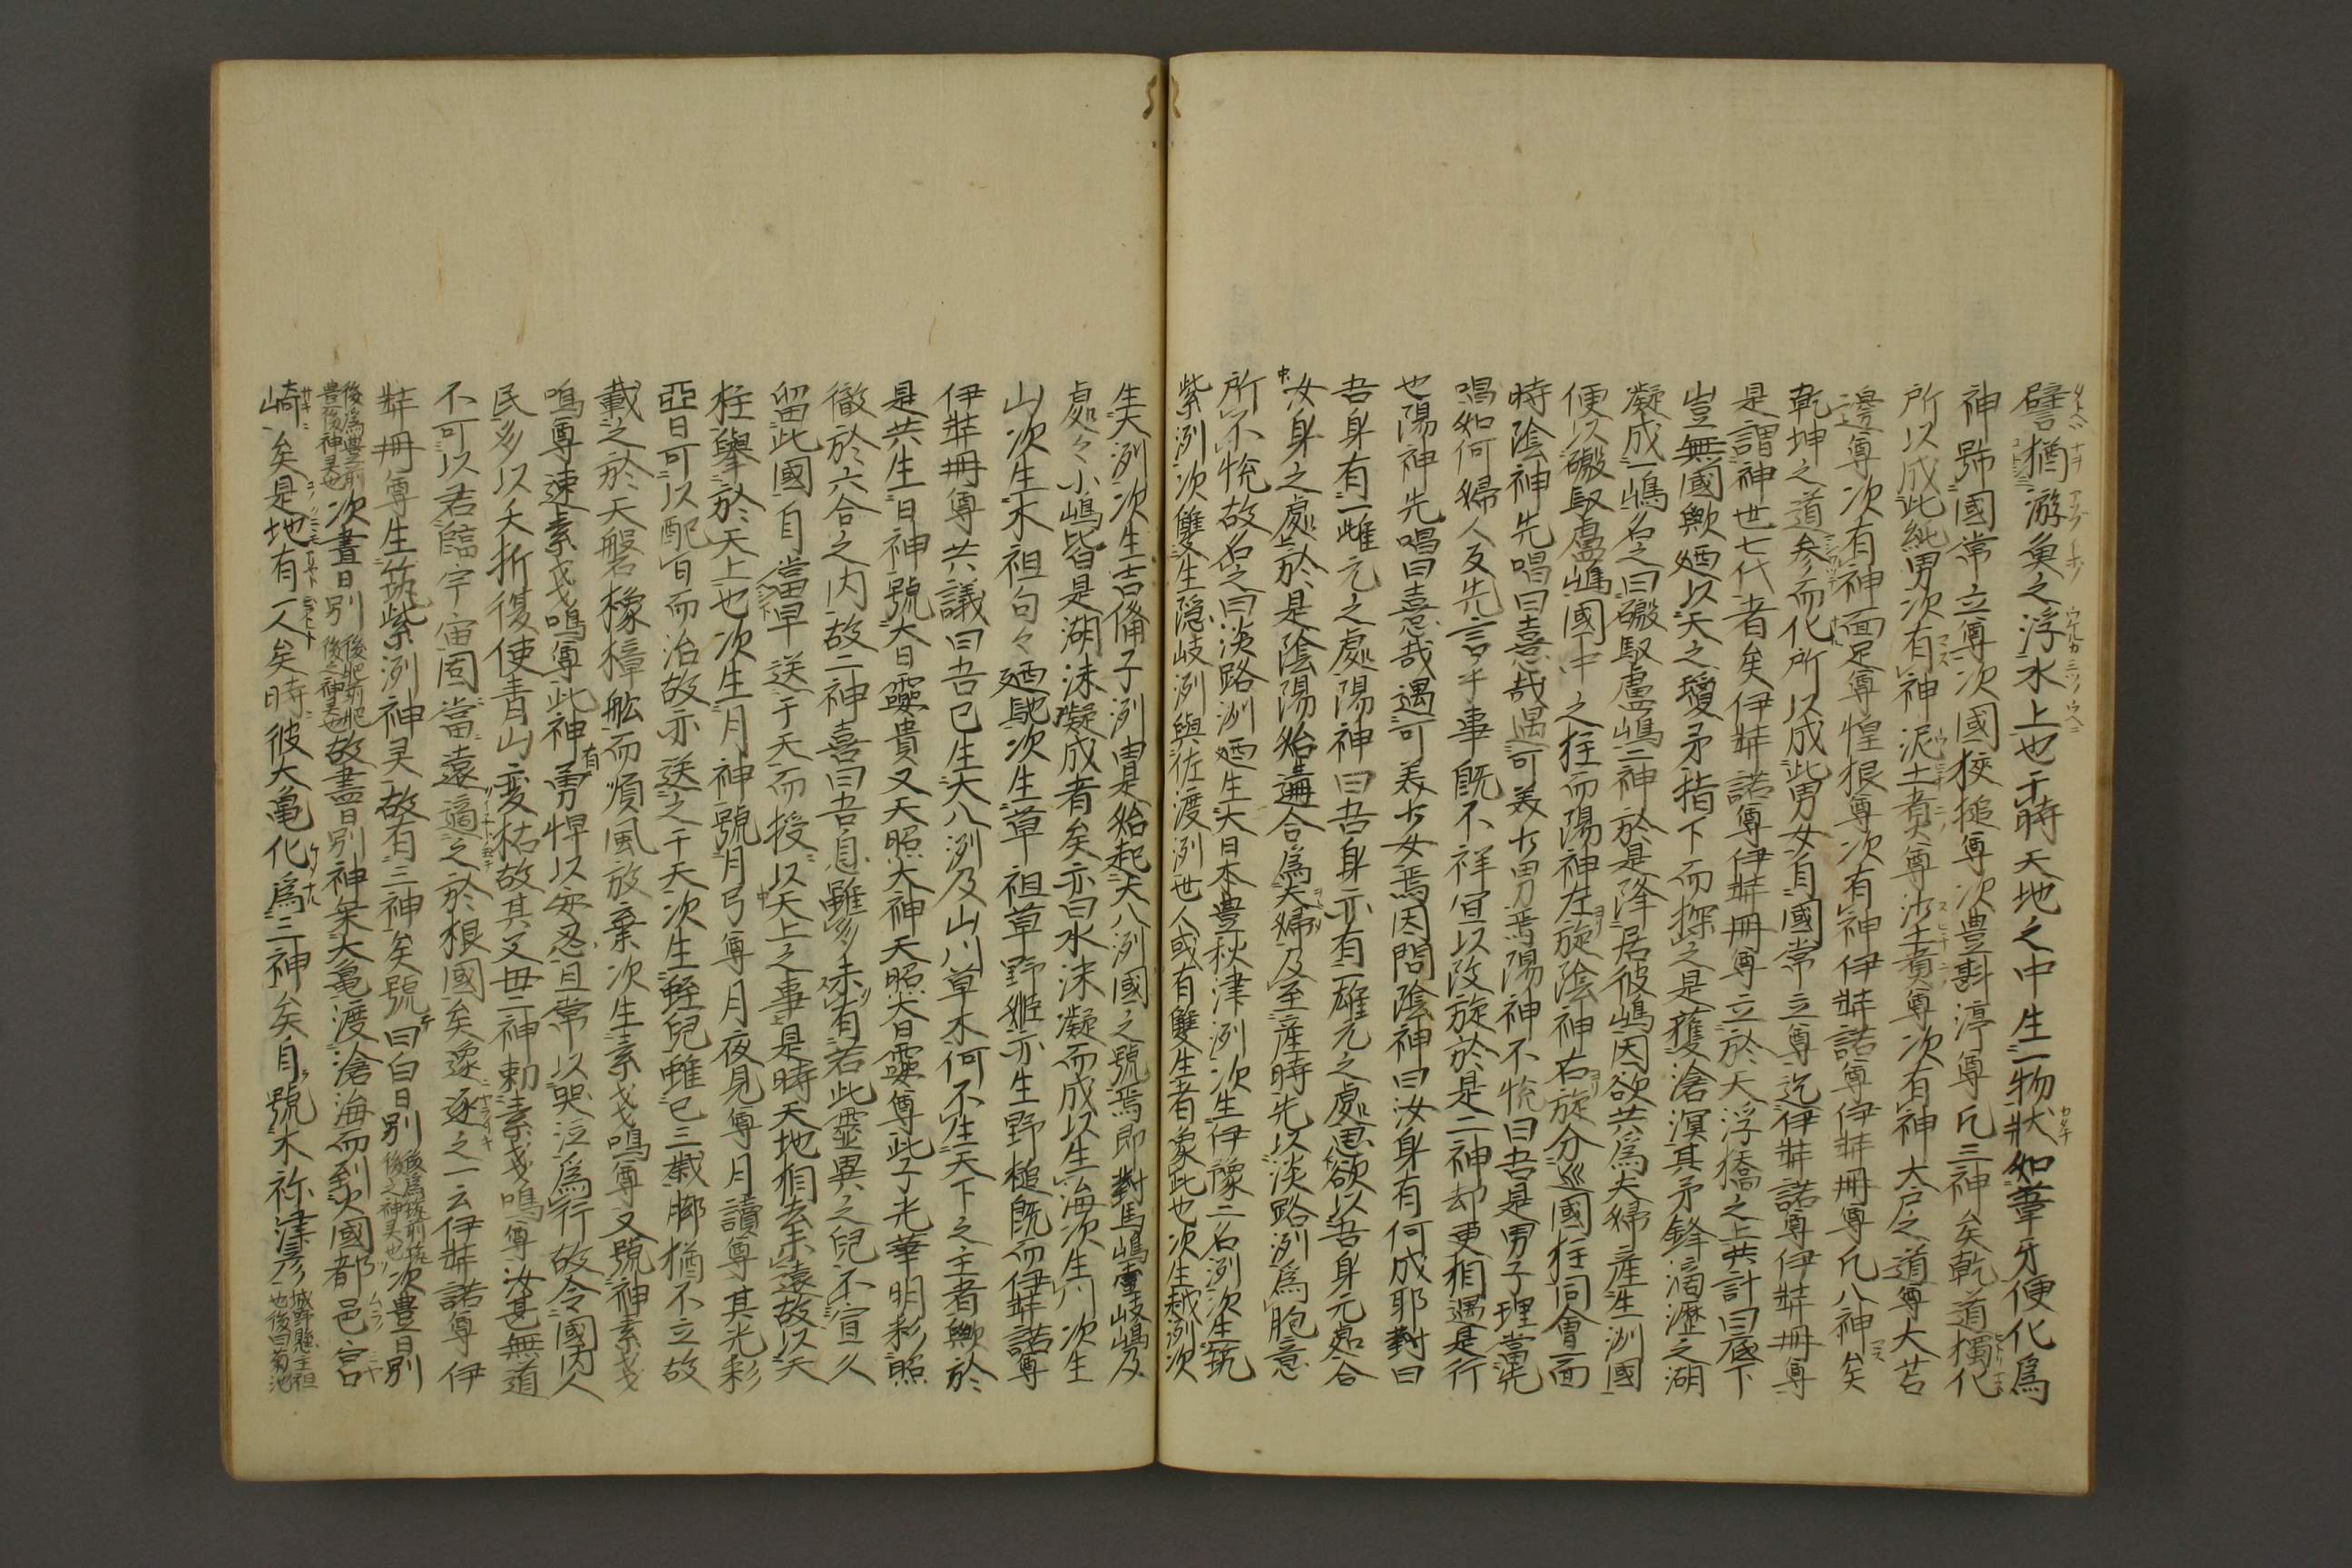 譬猶游魚之浮水上也于時天地之中生一物狀如葦牙便化爲
神號國常立尊次國狹槌尊次豊斟渟尊凡三神矣乾道獨化
所以成此純男次有神泥土煑尊沙土煑尊次有神大戸之道尊大苫
邊尊次有神面足尊惶根尊次有神伊弉諾尊伊弉冊尊凡八神矣
乾坤之道参而化所以成此男女自國常立尊迄伊弉諾尊伊弉冊尊
是謂神世七代者矣伊弉諾尊伊弉冊尊立於天浮橋之上共計曰底下
豈無國歟廼以天之瓊矛指下而探之是獲滄溟其矛鋒滴瀝之湖
凝成一嶋名之曰磤馭盧嶋二神於是降居彼嶋因欲共爲夫婦産生洲國
便以磤馭盧嶋國中之柱而陽神左旋陰神右旋分巡國柱同會一面
時陰神先唱曰憙哉遇可美少男焉陽神不悦曰吾是男子理當先
唱如何婦人反先言乎事既不祥宜以改旋於是二神却更相遇是行
也陽神先唱曰憙哉遇可美少女焉因問陰神曰汝身有何成耶對曰
吾身有一雌元之處陽神曰吾身亦有雄元之處思欲以吾身元處合
女身之處於是陰陽始遘合爲夫婦及至産時先以淡路洲爲胞意
所不悦故名之曰淡路洲廼生大日本豊秋津洲次生伊豫二名洲次生筑
紫洲次雙生隠岐洲與佐渡洲世人或有雙生者象此也次生越洲次
生大洲次生吉備子洲由是始起大八洲國之號焉即對馬嶋壹岐嶋及
處々小嶋皆是湖沫凝成者矣亦曰水沫凝而成以生海次生川次生
山次生木祖句々廼馳次生草祖草野姫亦生野槌既而伊弉諾尊
伊弉冊尊共議曰吾已生大八洲及山川草木何不生天下之主者歟於
是共生日神號大日孁貴又天照大神天照大日孁尊此子光華明彩照
徹於六合之内故二神喜曰吾息雖多未有若此靈異之兒不宜久
留此國自當早送于天而授以天上之事是時天地相去未遠故以天
柱擧於天上也次生月神號月弓尊月夜見尊月讀尊其光彩
亞日可以配日而治故亦送之于天次生蛭兒雖已三歳脚猶不立故
載之於天磐櫲樟舩而順風放棄次生素戔嗚尊又號神素戔
嗚尊速素戔嗚尊此神有勇悍以安忍且常以哭泣爲行故令國内人
民多以夭折復使青山変枯故其父母二神勅素戔嗚尊汝甚無道
不可以君臨宇宙固當遠適之於根國矣遂逐之一云伊弉諾尊伊
弉冊尊生筑紫洲神灵故有三神矣號曰白日別 次豊日別
後爲豊前豊後神灵也次晝日別後肥前肥後之神灵也故晝日別神乗大亀渡滄海而到火國都邑宮
崎矣是地有一人矣時彼大亀化爲二神矣自號木祢津彦城野縣主祖也後曰菊池